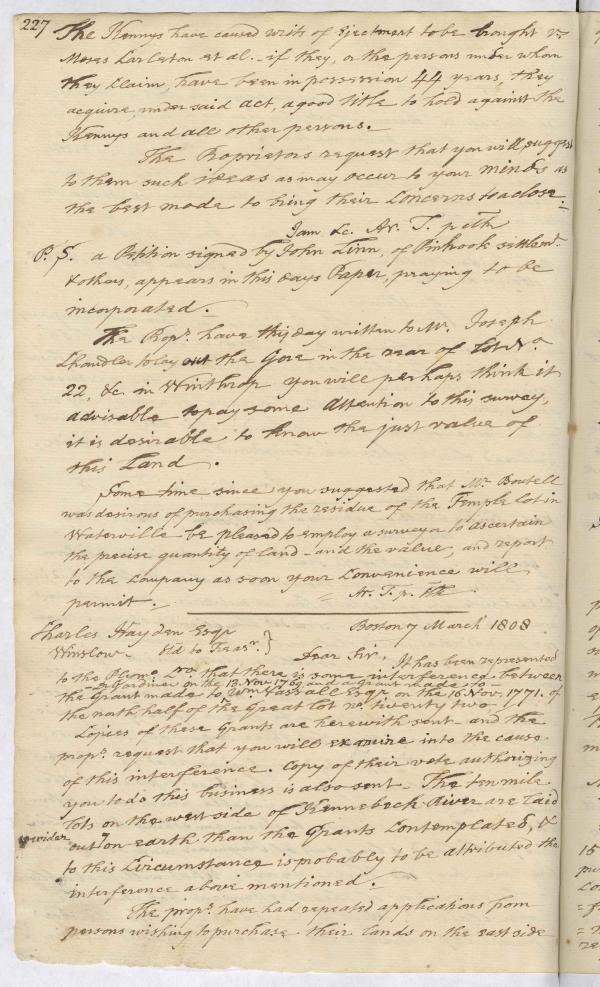 227 The Kennys have caused writs of Ejectment to be brought vs
Moses Carleton et al. - if they, or the persons under whom
they Claim, have been in possession 44 years, they
acquire, under said act, a good title to hold against the
Kennys and all other persons.
The Proprietors request that you will suggest
to them such ideas as may occur to your minds as
the best mode to bring their Concerns to a close.
I am &c. Ar. T. p. eth
P.S. a Petition signed by John Linn, of Pinhook settlemt.
& others, appears in this days Paper, praying to be
incorporated.
The Propr. have this day written to Mr. Joseph
Chandler to lay out the Gore in the rear of Lot No.
22, &c. in Winthrop you will perhaps think it
advisable to pay some Attention to this survey,
it is desirable to know the just value of
this Land.
Some time since you suggested that Mr. Boutell
was desirous of purchasing the residue of the Temple lot in
Waterville be pleased to employ a surveyor to ascertain
the precise quantity of land - and the value, and report
to the Company as soon your Convenience will
permit. = Ar. T. p.
Charles Hayden Esqr Boston 7 March 1808
Winslow. Old to Feasr. } Dear Sir, It has been represented
to the Plymo. pro. that there is some interference between
Gardiner on the 13. Nov. 1760 and a grant made to
the Grant made to Wm Vassall Esqr. on the 16 Nov. 1771. of
the north half of the Great Lot no. twenty two.
Copies of these Grants are herewith sent - and the
propr. request that you will examine into the cause
of this interference. Copy of their vote authorizing
you to do this business is also sent. The ten mile
Lots on the west side of Kennebeck River are laid
wider out on earth than the Grants Contemplated, &
to this Circumstance is probably to be attributed the
interference above mentioned.
The propr. have had repeated applications from
persons wishing to purchase their lands on the east side